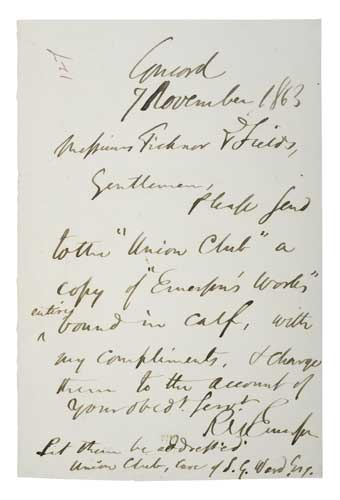 Concord
7 November 1863
Messieurs Ticknor & Fields,
Gentlemen,
Please send
to the "Union Club" a
copy of "Emerson's Works"
entire
bound in calf, with
my compliments, & charge
them to the account of
Your obedt. servt.
R. W. Emerson
Let them be addressed
Union Club, care of S. G. Ward Esq.